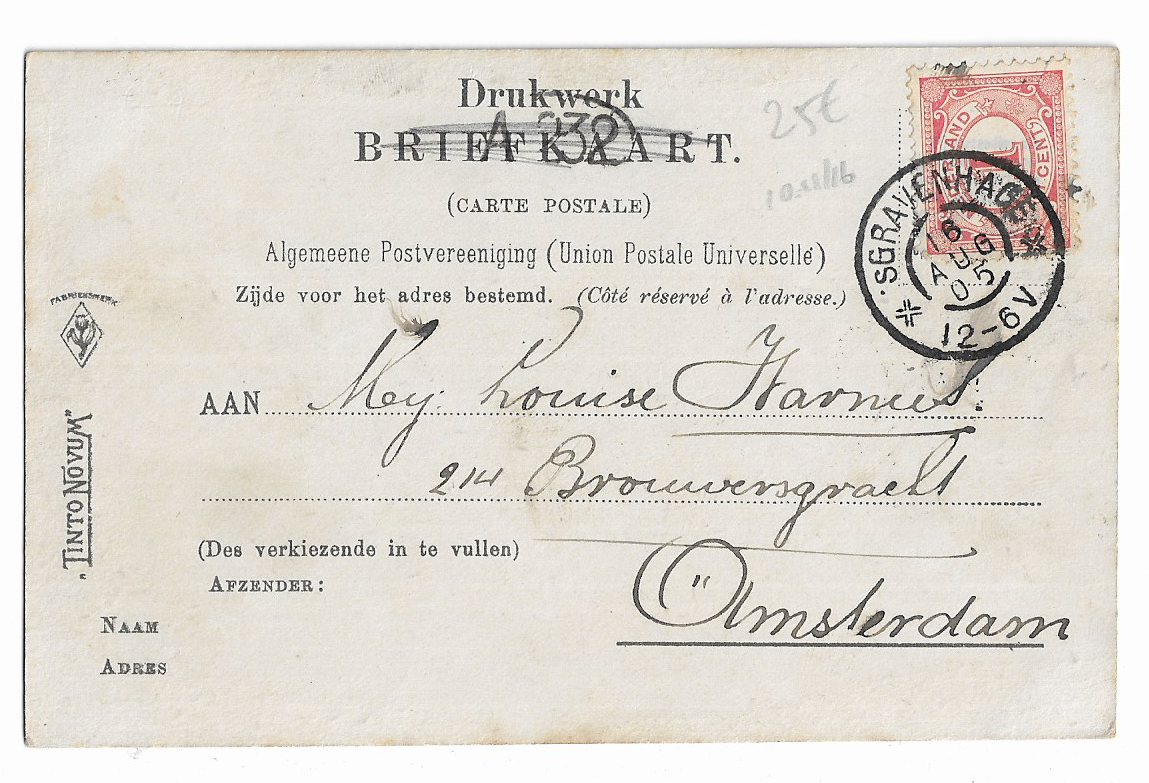 Drukwerk
BRIEFKAART.
A 232
25€
(CARTE POSTALE)
Algemeene Postvereeniging (Union Postale Universelle)
Zijde voor het adres bestemd. (Côté réservé à l'adresse.)
NEDERLAND
1
CENT
'SGRAVENHAGE
16
AUG
05
12-6V
FABRIEKSMERK
"TINTO NOVUM"
AAN Mej. Louise
214 Brouwersgracht
Amsterdam
(Des verkiezende in te vullen)
AFZENDER:
NAAM
ADRES